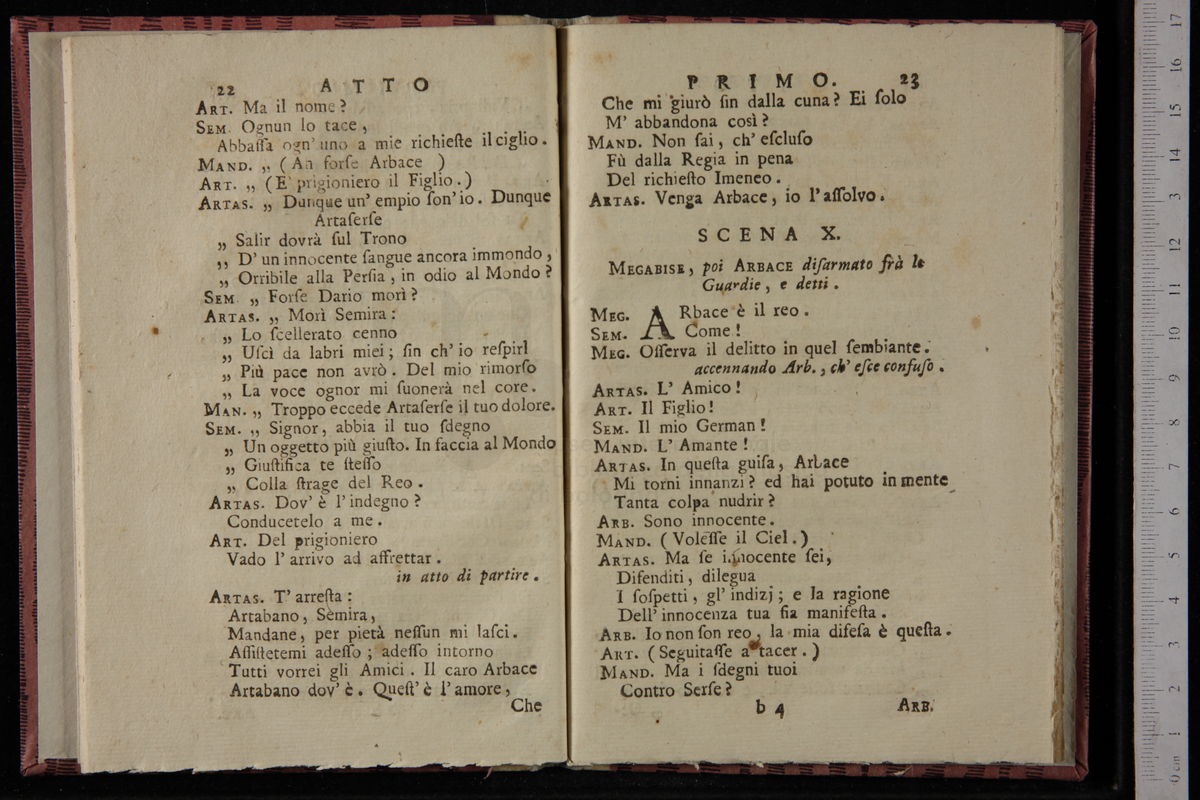 22 ATTO
ART. Ma il nome?
SEM. Ognun lo tace,
Abbaſſa ogn' uno a mie richieſte il ciglio.
MAND. „ (Ah forſe Arbace )
ART. „ (E' prigioniero il Figlio.)
ARTAS. „ Dunque un' empio ſon' io. Dunque
Artaſerſe
„ Salir dovrà ſul Trono
„ D' un innocente ſangue ancora immondo,
„ Orribile alla Perſia, in odio al Mondo?
SEM. „ Forſe Dario morì?
ARTAS. „ Morì Semira:
„ Lo ſcellerato cenno
„ Uſcì da labri miei; ſin ch' io reſpirl
„ Più pace non avrò. Del mio rimorſo
„ La voce ognor mi ſuonerà nel core.
MAN. „ Troppo eccede Artaſerſe il tuo dolore.
SEM. „ Signor, abbia il tuo ſdegno
„ Un oggetto più giuſto. In faccia al Mondo
„ Giuſtifica te ſteſſo
„ Colla ſtrage del Reo.
ARTAS. Dov' è l' indegno?
Conducetelo a me.
ART. Del prigioniero
Vado l' arrivo ad affrettar.
in atto di partire.
ARTAS. T' arreſta:
Artabano, Sèmira,
Mandane, per pietà neſſun mi laſci.
Aſſiſtetemi adeſſo; adeſſo intorno
Tutti vorrei gli Amici. Il caro Arbace
Artabano dov' è. Queſt' è l' amore,
Che
PRIMO. 23
Che mi giurò ſin dalla cuna? Ei ſolo
M' abbandona così?
MAND. Non ſai, ch' eſcluſo
Fù dalla Regia in pena
Del richieſto Imeneo.
ARTAS. Venga Arbace, io l' aſſolvo.
SCENA X.
MEGABISE, poi ARBACE diſarmato frà le
Guardie, e detti.
MEG. ARbace è il reo.
SEM. Come!
MEG. Oſſerva il delitto in quel ſembiante.
accennando Arb., ch' eſce confuſo.
ARTAS. L' Amico!
ART. Il Figlio!
SEM. Il mio German!
MAND. L' Amante!
ARTAS. In queſta guiſa, Arbace
Mi torni innanzi? ed hai potuto in mente
Tanta colpa nudrir?
ARB. Sono innocente.
MAND. (Voleſſe il Ciel.)
ARTAS. Ma ſe innocente ſei,
Difenditi, dilegua
I ſoſpetti, gl' indizj; e la ragione
Dell' innocenza tua ſia manifeſta.
ARB. Io non ſon reo, la mia difeſa è queſta.
ART. (Seguitaſſe a tacer.)
MAND. Ma i ſdegni tuoi
Contro Serſe?
b 4 ARB.
0 cm 1 2 3 4 5 6 7 8 9 10 11 12 3 14 15 16 17